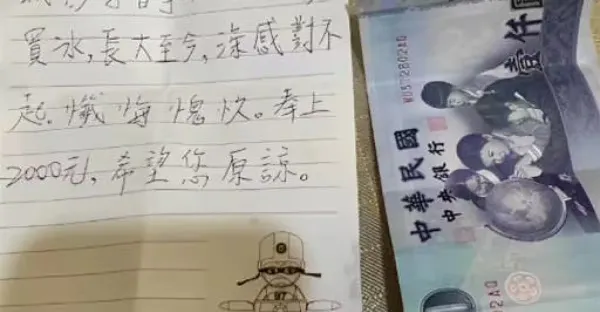 買冰,長大至今,深感對不
起。懺悔愧疚。奉上
2000元,希望您原諒。
97
中華民國
中央銀行
壹仟圓